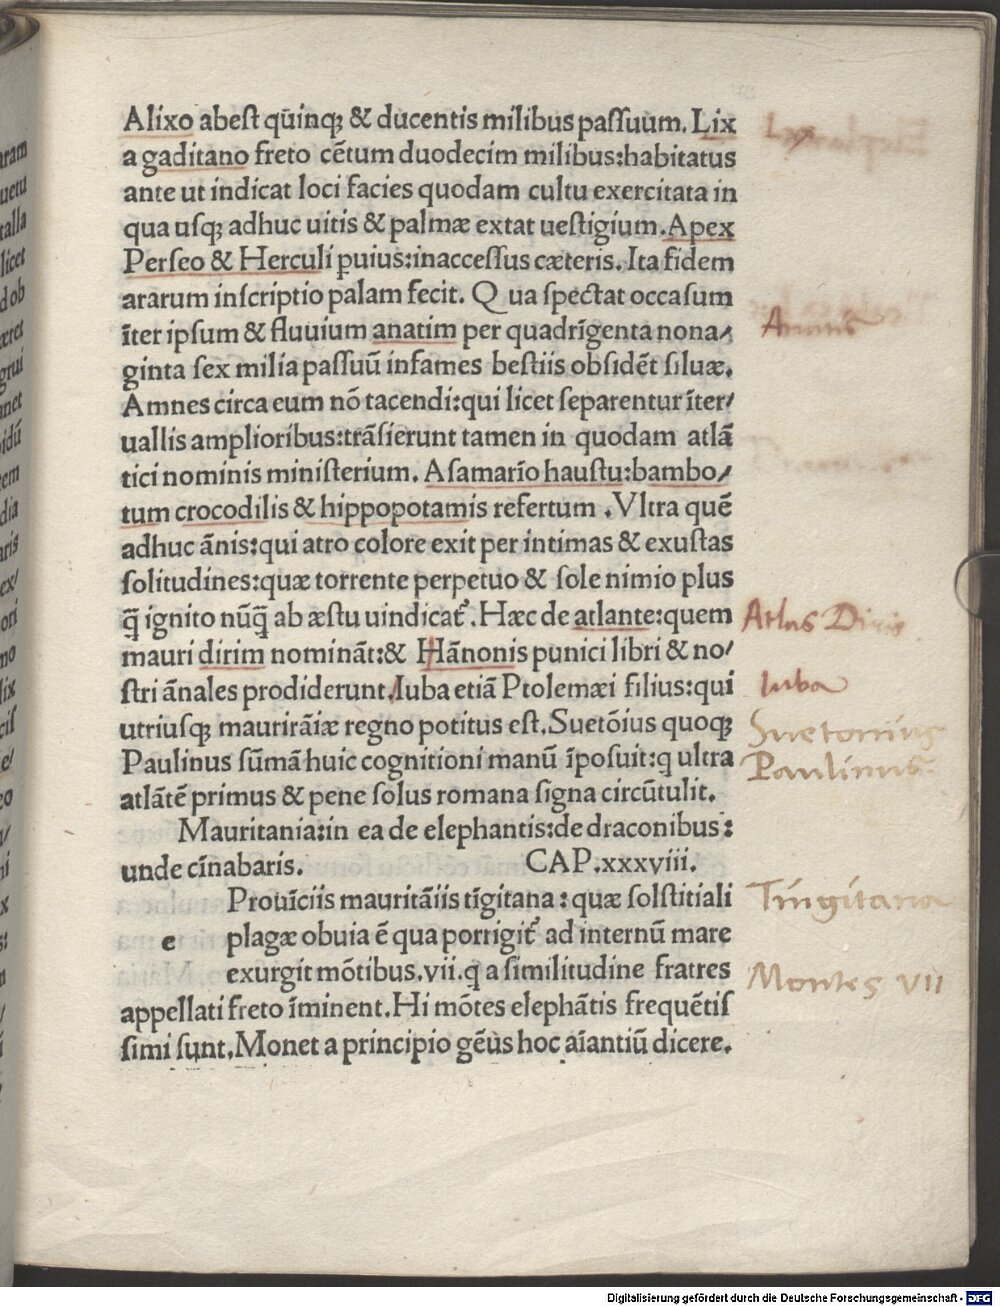 Alixo abeſt quinqꝫ & ducentis milibus paſſuum. Lix
a gaditano freto cētum duodecim milibus:habitatus
ante ut indicat loci facies quodam cultu exercitata in
qua uſqꝫ adhuc uitis & palmæ extat ueſtigium. Apex
Perſeo & Herculi puius:inacceſſus cæteris. Ita fidem
ararum inſcriptio palam fecit. Q ua ſpectat occaſum
īter ipſum & fluuium anatim per quadrīgenta nona/
ginta ſex milia paſſuū infames beſtiis obſidēt ſiluæ.
Amnes circa eum nō tacendi:qui licet ſeparentur īter/
uallis amplioribus:trāſierunt tamen in quodam atlā
tici nominis miniſterium. Aſamario hauſtu:bambo/
tum crocodilis & hippopotamis refertum .Vltra quē
adhuc ānis:qui atro colore exit per intimas & exuſtas
ſolitudines:quæ torrente perpetuo & ſole nimio plus
q̄ ignito nūq̄ ab æſtu uindicat᷑. Hæc de atlante:quem
mauri dirim nomināt:& Hānonis punici libri & no/
ſtri ānales prodiderunt.Iuba etiā Ptolemæi filius:qui
utriuſqꝫ maurirāiæ regno potitus eſt.Suetōius quoqꝫ
Paulinus ſūmā huic cognitioni manū īpoſuit:q ultra
atlātē primus & pene ſolus romana ſigna circūtulit.
Mauritania:in ea de elephantis:de draconibus:
unde cīnabaris. CAP.xxxviii.
Prouīciis mauritāiis tīgitana : quæ ſolſtitiali
e plagæ obuia ē qua porrigit᷑ ad internū mare
exurgit mōtibus.vii.q a ſimilitudine fratres
appellati freto īminent.Hi mōtes elephātis frequētiſ
ſimi ſunt.Monet a principio gēus hoc aīantiū dicere.
Lix
Anatis
Atlas Diris
Iuba
Suetonius
Paulinus
Tingitana
Montes VII
Digitalisierung gefördert durch die Deutsche Forschungsgemeinschaft - DFG